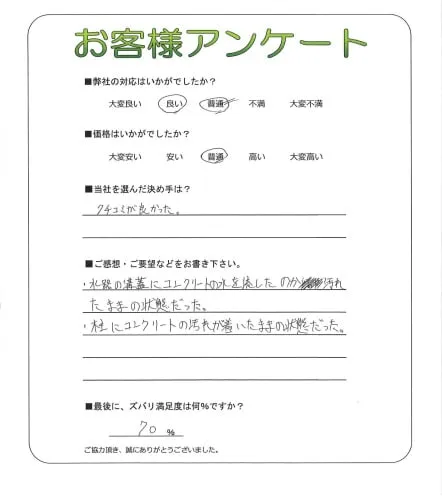 お客様アンケート
■弊社の対応はいかがでしたか?
大変良い 良い 普通 不満 大変不満
■価格はいかがでしたか?
大変安い 安い 普通 高い 大変高い
■当社を選んだ決め手は?
クチコミが良かった。
■ご感想・ご要望などをお書き下さい。
・水路の溝蓋にコンクリートの水を流したのか汚れ
たままの状態だった。
・柱にコンクリートの汚れが着いたままの状態だった。
■最後に、ズバリ満足度は何%ですか?
70 %
ご協力頂き、誠にありがとうございました。